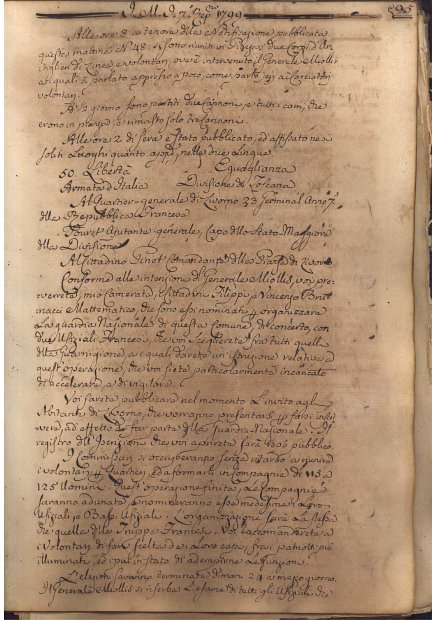 J. M. J. 1799
Alle ore 8 a tenore della Notificazione pubblicata
questa mattina N. 48: si sono riuniti in due Corpi
e volontarj, ove è intervenuto il Generale Miollis
ai quali à parlato appresso a poco, come
volontarj.
A ½ giorno sono partiti due cannoni, e tutti i cami, che
erono in piazza, è rimasto solo tre cannoni
Alle ore 2 di sera è stato pubblicato, ed affissato nei
soliti Luoghi quanto apo, nelle due Lingue
50. Libertà Eguaglianza
Armata d'Italia Divisione di Toscana
Al Quartier=generale di Livorno 23 Germinal Anno 7
della Repubblica Francese
Ajutante=generale, Capo dello Stato Maggiore
della Divisione
Al Cittadino Comandante della Piazza di Livorno
Conforme alle intenzioni del Generale Miollis, voi pre=
verrete, mio Camerata, i Cittadini Filippi, e Vincenzo Bru=
nacci Mattematico, che sono essi nominati per organizzare
La Guardia Nazionale di questa Comune di concerto con
due Ufiziali Francesi, che voi sceglierete fra tutti quelli
della Guarnigione, ai quali darete un' istruzione relativa a
quest' operazione, che voi siete particolarmente incaricato
di accelerare, e di vigilare.
Voi farete pubblicare nel momento L'invito agl'
Abitanti di Livorno, che vorranno presentarsi per farsi inscri=
vere, ad effetto di far parte della Guardia Nazionale. Il
registro dell' Iscrizione che voi aprirete sarà reso pubblico.
I Commissarj si occuperanno senza ritardo a riunire
i volontarj per Quartieri, ed a formarli in Compagnie di 115 a
125 Uomini. Quest' operazione finita, Le Compagnie
saranno adunate, e nomineranno esse medesime i Loro
Ufiziali, e Bassi Ufiziali. L'organizzazione sarà La stessa
che quella delle Truppe Francesi. Voi raccomanderete a
i volontarj di fare scelta de i Loro capi, fra i patriotti più
illuminati, ed i più in stato di adempirne Le funzioni.
L'elezioni saranno terminate dimani 24 a mezzo giorno.
Il Generale Miollis si riserba L'esame di tutti gli Ufiziali che